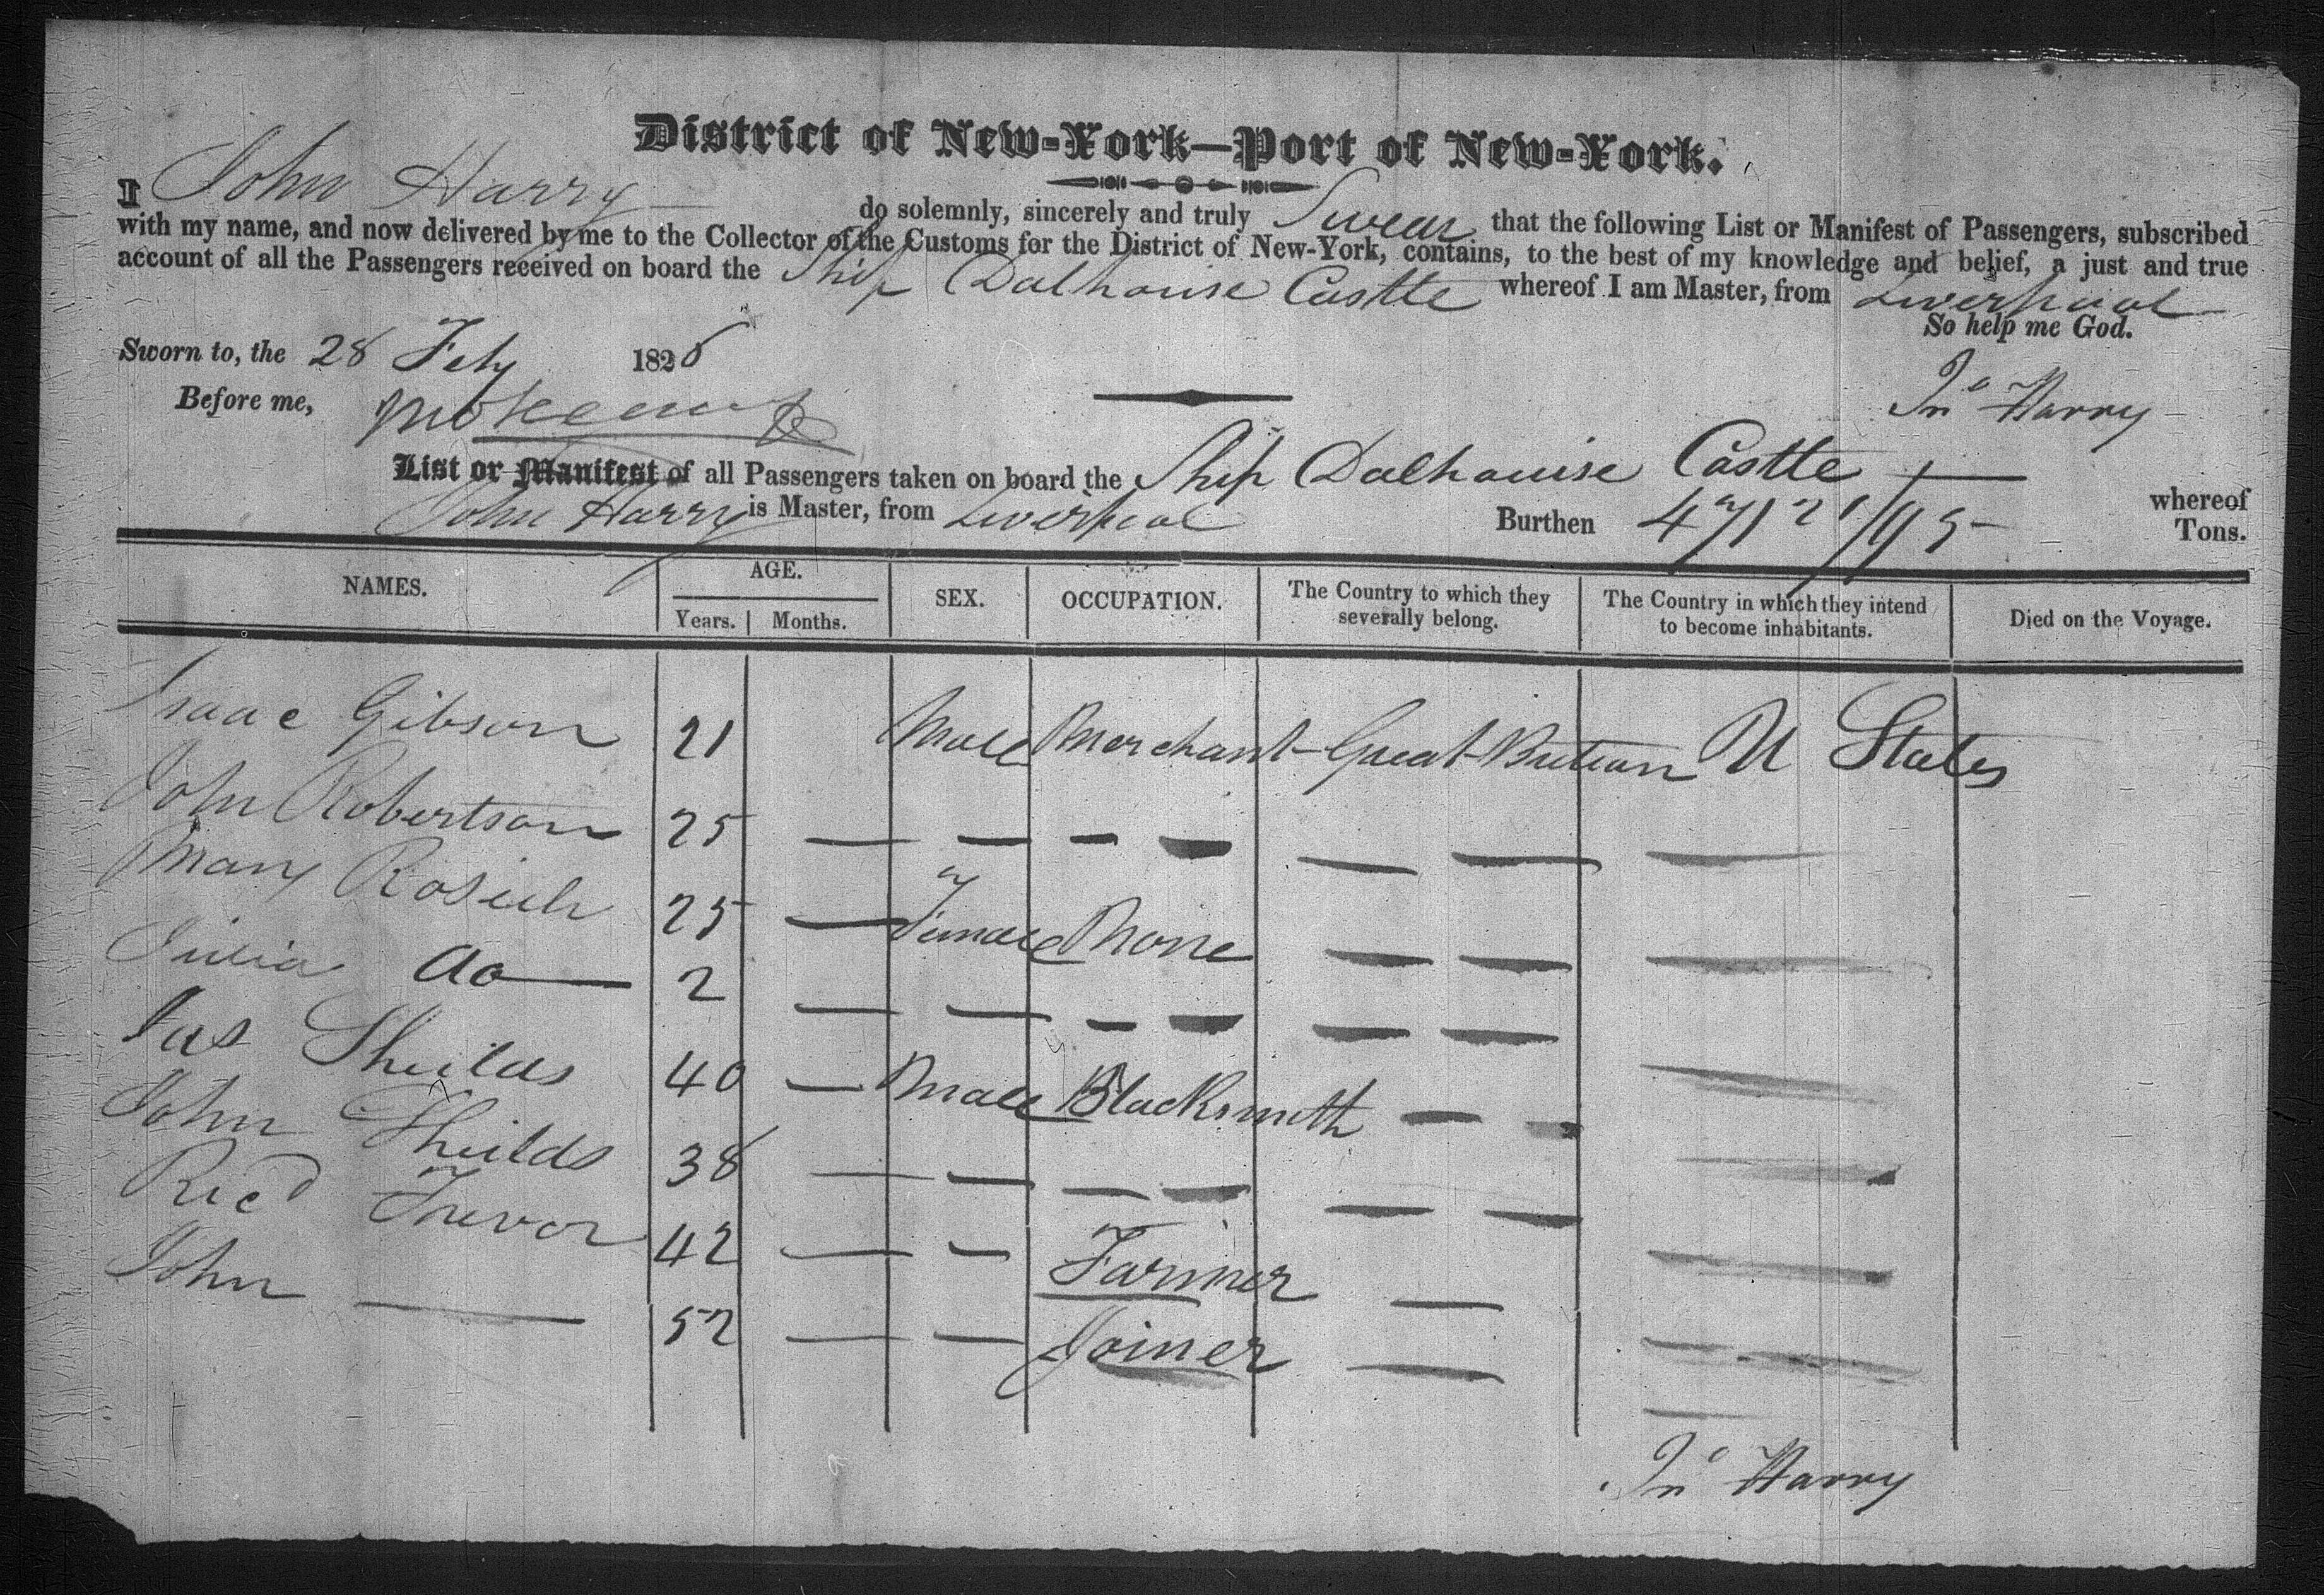 District of New-York—Port of New-York.
I John Harry do solemnly, sincerely and truly Swear that the following List or Manifest of Passengers, subscribed
with my name, and now delivered by me to the Collector of the Customs for the District of New-York, contains, to the best of my knowledge and belief, a just and true
account of all the Passengers received on board the Ship Dalhouise Castle whereof I am Master, from Liverpool
So help me God.
Sworn to, the 28 Feby 1828
Jno Harry
Before me,
List or Manifest of all Passengers taken on board the Ship Dalhouise Castle whereof
John Harry is Master, from Liverpool Burthen Tons.
NAMES. AGE. SEX. OCCUPATION. The Country to which they severally belong. The Country in which they intend to become inhabitants. Died on the Voyage.
Years. Months.
Isaac Gibson 21 Male Merchant Great Britian U States
John Robertson 25 — — — — — — —
Mary 25 — Female None — — —
Julia do — 2 — — — — — —
Jas Sheilds 40 — Male Blacksmith — — —
John Sheilds 38 — — — — — — —
Ricd Trevor 42 — — Farmer — —
John — 52 — — Joiner — —
Jno Harry